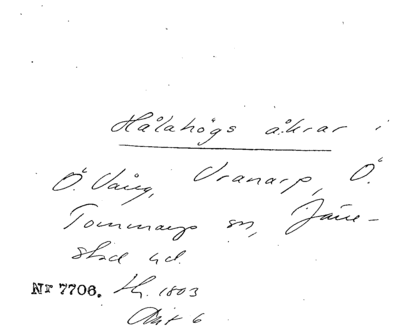 Hålahögs åkrar i
Ö. Vång, Vranarp, Ö.
Tommarp sn, Järre-
stad hd.
Nr 7706. Sk. 1803
Akt 6